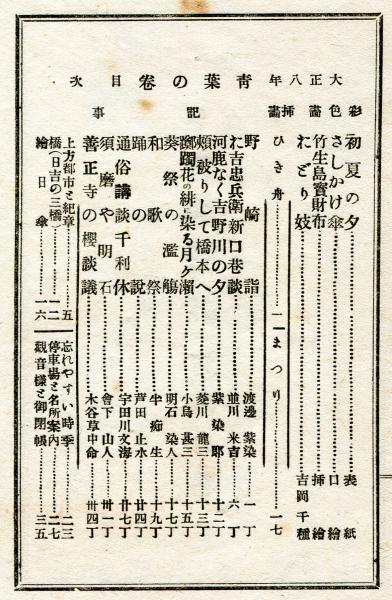 大正八年 青葉の卷 目次
彩色畵
初夏の夕……表紙
さしかけ傘……口繪
竹生島寶財布……挿繪
をどり妓……吉岡千種
挿畵
ひき舟……一一
まつり……一七
記事
野崎詣……渡邊紫染 一丁
お吉忠兵衛新口巷談……並川米吉 六丁
河鹿なく吉野川の夕……紫染郎 十二丁
頰被りして橋本へ……菱川龍三 十三丁
躑躅花の緋に染る月ヶ瀨……小島甚三 十五丁
葵祭の濫觴……明石染人 十七丁
和歌祭……牛痴生 十九丁
踊の說……芦田止水 廿四丁
通俗講談千利休……宇田川文海 廿七丁
須磨や明石……會下山人 卅一丁
善正寺の櫻談議……木谷草中命 卅四丁
上方都市と紀章……五
橋(日吉の三橋)……一二
繪日傘……一六
忘れやすい時季……二三
停車場と名所案內……二七
觀音樣と御開帳……三五